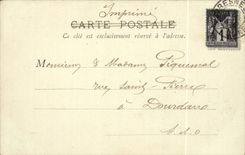 Imprimé
CARTE POSTALE
Ce côté est exclusivement réservé à l'adresse.
Monsieur & Madame Piquemal
rue Saint-Pierre
à Dourdan
S. & O